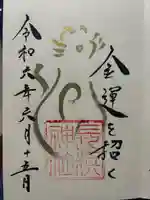 金運を招く
神社
令和六年六月十五日